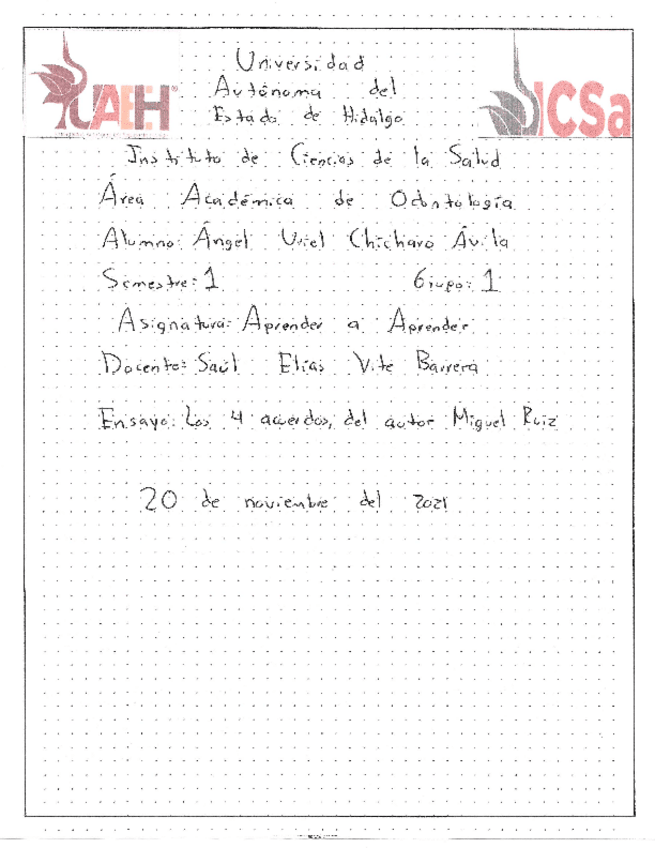 Universidad
Autónoma del
Estado de Hidalgo
UAEH
ICSa
Instituto de Ciencias de la Salud
Área Académica de Odontología
Alumno: Ángel Uriel Chicharo Ávila
Semestre: 1 Grupo: 1
Asignatura: Aprender a Aprender
Docente: Saúl Elías Vite Barrera
Ensayo: Los 4 acuerdos, del autor Miguel Ruiz
20 de noviembre del 2021